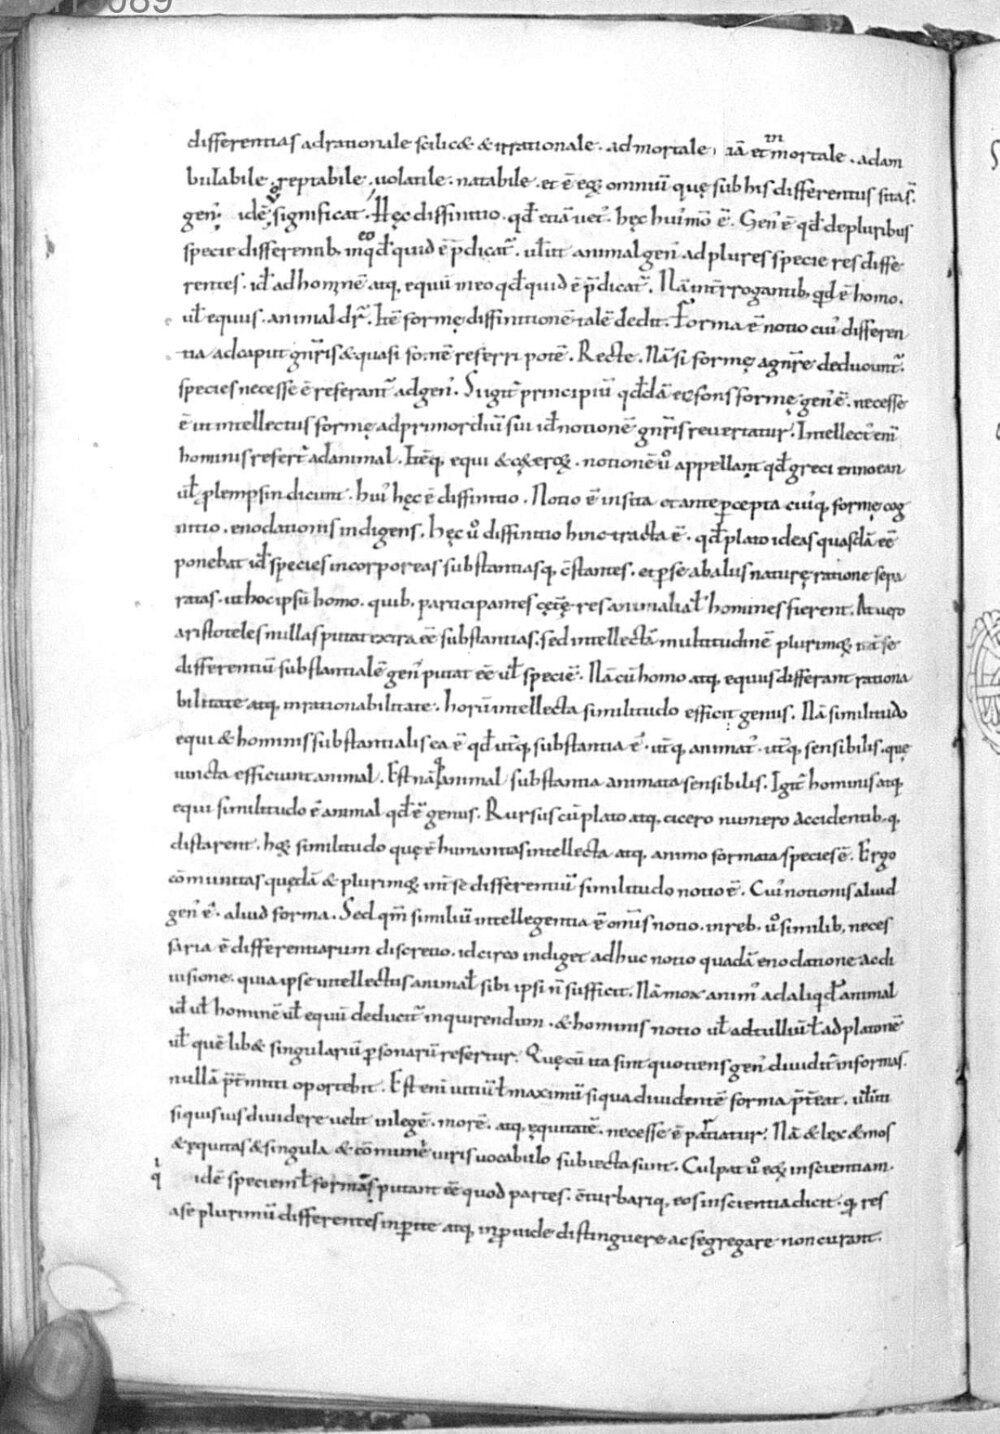 differentias ad rationale scilic& & irrationale. ad mortale, iā et inmortale. adam
bulabile. reptabile. uolatile. natabile. et ē eqƷ omniū quę sub his differentiis sitas.̄
gen᾽. idē significat. Hęc diffinitio. qđ etiā uet᾽. hęc hui᾽mōi ē. Gen᾽ ē qđ de pluribus
specie differentib, in eo qđ quid ē p̄dicat᾽. ul̄ iti animal gen᾽ ad plures specie res diffe
rentes. id̄ ad hominē atq, equū in eo qđ quid ē p̄dicat᾽. Nā int̄rrogantib, qđ ē homo.
ul̄ equus. animal dr̄. Itē formę diffinitionē talē dedit. Forma ē notio cui᾽ differen
tia ad caput gn̄ris & quasi fontē referri potē. Recte. Nā si formę a gn̄re deduount᾽.
species necesse ē referant᾽ ad gen᾽. Si igit᾽ principiū qđdā & fons formę gen᾽ ē. necesse
ē ut intellectus formę ad primordiū sui id̄ notionē gn̄ris reuertatur. Intellect᾽ eni
hominis refert᾽ ad animal. Itēq, equi & c&erorƷ. notionē u᾽ appellant qđ greci ennoean
ul̄ plempsin dicunt. hui᾽ hęc ē diffinitio. Notio ē insita et ante p̄cepta cui᾽q, formę cog
nitio. enodationis indigens. hęc u᾽ diffinitio hinc tracta ē. qđ plato ideas quasdā eē
ponebat id̄ species incorporeas substantiasq, c̄stantes. et p se ab aliis naturę ratione sepa
ratas. ut hoc ipsū homo. quib, participantes cęterę res animalia ł homines fierent. At uero
aristoteles nullas putat extra eē substantias. sed intellectā multitudinē plurimƷ int̄ se
differentiū substantialē gen᾽ putat eē ul̄ speciē. Nā cū homo atq, equus differant rationa
bilitate atq, inrationabilitate. horū intellecta similitudo efficit genus. Nā similitudo
equi & hominis substantialis ea ē qđ ut̄q, substantia ē. ut̄q, animat᾽. ut̄q, sensibilis. quę
iuncta efficiunt animal. Est nā ł animal substantia animata sensibilis. Igit᾽ hominis atq,
equi similitudo ē animal qđ ē genus. Rursus cū plato atq, cicero numero accidentib, q,
distarent. hƷ similitudo quę ē humanitas intellecta atq, animo formata species ē. Ergo
cōmunitas quędā & plurimƷ int̄ se differentiū similitudo notio ē. Cui᾽ notionis aliud
gen᾽ ē. aliud forma. Sed qm̄ similiū intellegentia ē om̄is notio. in reb, u᾽ similib, neces
saria ē differentiarum discretio. idcirco indiget adhuc notio quadā enodatione ac di
uisione. quia ipse intellectus animal̄ sibi ipsi n̄ sufficit. Nā mox anim᾽ ad aliqđ animal
id̄ ul̄ hominē ul̄ equū deducit᾽ inquirendum. & hominis notio ul̄ ad tulliū ł ad platonē
ul̄ quē lib& singulariū p̄sonarū refertur. Quę cū ita sint quotiens gen᾽ diuidit᾽ in formas.
nullā p̄t̄mitti oportebit. Est eni uitiū ł maximū si qua diuidentē forma p̄t̄eat. ul̄ iti
si quis ius diuidere uelit in legē. morē. atq, ęquitatē. necesse ē patiatur. Nā & lex & mos
& ęquitas & singula & cōmunit̄ iuris uocabulo subiecta sunt. Culpat u᾽ eƷ inscientiam.
qi idē speciem ł formas putant eē quod partes. c̄turbariq, eos inscientia dicit. q, res
a se plurimū differentes inp̄ite atq, inp̄uide distinguere ac segregare non curant.